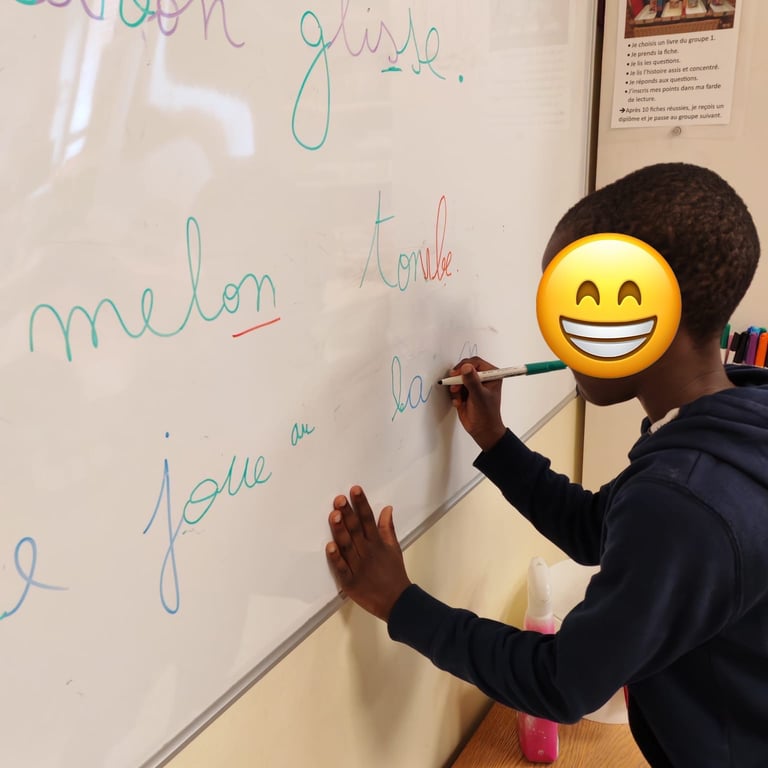 glisse.
melon tombe.
joue au
• Je choisis un livre du groupe 1.
• Je prends la fiche.
• Je lis les questions.
• Je lis l'histoire assis et concentré.
• Je réponds aux questions.
• J'inscris mes points dans ma farde
de lecture.
➔Après 10 fiches réussies, je reçois un
diplôme et je passe au groupe suivant.